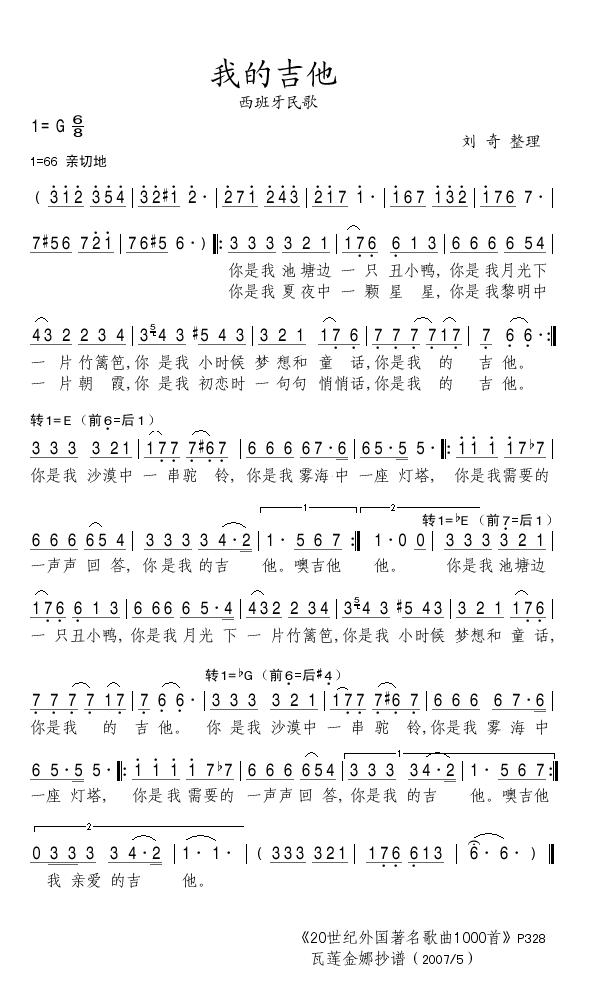 我的吉他
西班牙民歌
1= G 6/8
刘 奇 整理
1=66 亲切地
( 3̇1̇2̇ 3̇5̇4̇ | 3̇2̇#1̇ 2̇ · | 2̇7 1̇ 2̇4̇3̇ | 2̇1̇7 1̇ · | 1̇67 1̇3̇2̇ | 1̇76 7 · |
7#56 72̇1̇ | 76#5 6 · ) ‖: 3 3 3 3 2 1 | 176 6 1 3 | 6 6 6 6 54 |
你是我 池塘边 一 只 丑小鸭, 你是 我月光下
你是我 夏夜中 一 颗 星 星, 你是 我黎明中
43 2 2 3 4 | 3 5 4 3 #5 4 3 | 3 2 1 1 7 6 | 7 7 7 7 17 | 7 6 6 · :‖
一 片 竹篱笆,你 是我 小时候 梦 想和 童 话,你是我 的 吉 他。
一 片 朝 霞,你 是我 初恋时 一 句句 悄悄话,你是我 的 吉 他。
转1=E (前6=后1)
3 3 3 3 21 | 177 7#67 | 6 6 6 6 7 · 6 | 65 · 5 5 · ‖: 1̇1̇ 1̇ 1̇7♭7 |
你是我 沙漠中 一串驼 铃, 你是 我 雾海 中 一座 灯塔, 你是我需要的
6 6 6 65 4 | 3 3 3 3 4 · 2 | 1 · 5 6 7 :‖ 1 · 0 0 | 3 3 3 3 2 1 |
1
2
转1=♭E (前7=后1)
一声声 回 答, 你 是我 的吉 他。噢吉他 他。 你是我 池塘边
176 6 1 3 | 6 66 6 5 · 4 | 432 2 34 | 3 5 4 3 #5 43 | 3 2 1 176 |
一 只丑小鸭, 你是我 月光 下 一 片竹篱笆,你是我 小时候 梦想和 童 话,
转1=♭G (前6=后#4)
7 7 7 7 17 | 7 6 6 · | 3 3 3 3 2 1 | 177 7#6 7 | 6 6 6 6 7 · 6 |
你是我 的 吉 他。 你 是我 沙漠中 一 串 驼 铃,你是 我 雾 海 中
6 5 · 5 5 · ‖: 1̇ 1̇ 1̇ 1̇ 7♭7 | 6 6 6 654 | 3 3 3 34 · 2 | 1 · 5 6 7 :‖
1
一座 灯塔, 你是我 需要的 一声声 回 答, 你是我 的吉 他。噢吉他
2
0 3 3 3 3 4 · 2 | 1 · 1 · | ( 333 321 | 176 613 | 6 · 6 · ) ‖
我 亲爱 的吉 他。
《20世纪外国著名歌曲1000首》P328
瓦莲金娜抄谱(2007/5)